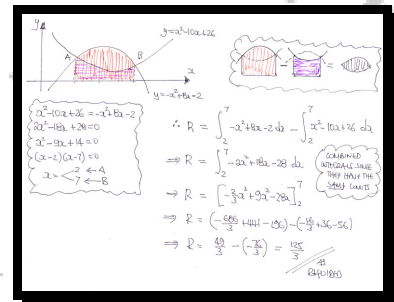 y
y=x²-10x+26
A
B
x
y=-x²+8x-2
- =
x²-10x+26 = -x²+8x-2
2x²-18x+28=0
x²-9x+14=0
(x-2)(x-7)=0
x= 2 ← A
7 ← B
∴ R = ∫₂⁷ -x²+8x-2 dx - ∫₂⁷ x²-10x+26 dx
⇒ R = ∫₂⁷ -2x²+18x-28 dx
COMBINED
INTEGRALS SINCE
THEY HAVE THE
SAME LIMITS
⇒ R = [-2/3x³+9x²-28x]₂⁷
⇒ R = (-686/3+441-196)-(-16/3+36-56)
⇒ R = 49/3 - (-76/3) = 125/3
AS
REQUIRED